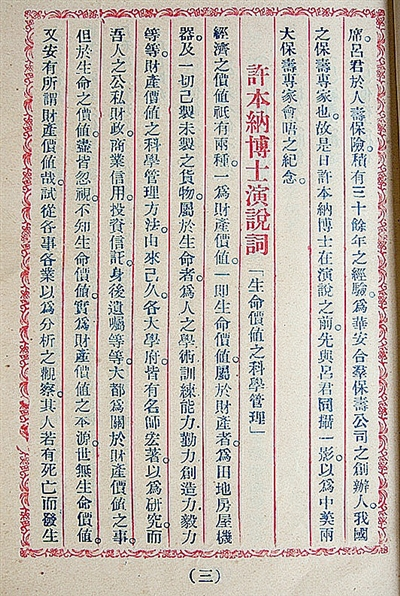 席。呂君於人壽保險。積有三十餘年之經驗。為華安合羣保壽公司之創辦人。我國
之保壽專家也。故是日許本納博士在演說之前。先與呂君同攝一影。以為中美兩
大保壽專家會晤之紀念。
許本納博士演說詞「生命價值之科學管理」
經濟之價值。祇有兩種。一為財產價值。一即生命價值。屬於財產者。為田地房屋機
器及一切已製未製之貨物。屬於生命者。為人之學術訓練能力勤力創造力毅力
等等。財產價值之科學管理方法。由來已久。各大學府。皆有名師宏著。以為研究。而
吾人之公私財政。商業信用。投資信託。身後遺囑等等。大都為關於財產價值之事。
但於生命之價值。盡皆忽視。不知生命價值。實為財產價值之本源。世無生命價值。
又安有所謂財產價值哉。試從各事各業以為分析之觀察。其人若有死亡而發生
(三)